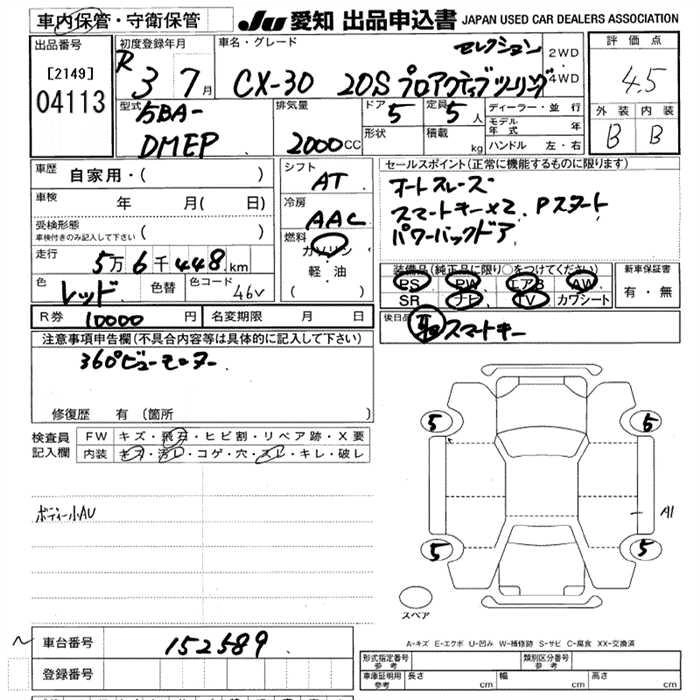 車内保管・守衛保管
JU 愛知 出品申込書 JAPAN USED CAR DEALERS ASSOCIATION
出品番号
[2149]
04113
初度登録年月
R 3 7月
車名・グレード
セレクション
CX-30 20S プロアクティブツーリング
2WD
4WD
評価点
4.5
外装 内装
B B
型式
5BA-
DMEP
排気量
2000CC
ドア 5
定員 5人
形状
積載 kg
ディーラー・並行
モデル年式 年
ハンドル 左・右
車歴 自家用・( )
車検 年 月( 日)
受検形態
車検付きのみ記入して下さい ( )
走行 5万6千448km
色 レッド 色替 色コード 46V
シフト
AT
冷房
AAC
燃料
ガソリン
軽・油
( )
セールスポイント(正常に機能するものに限ります)
オートスレーズ
スマートキー×2. Pスタート
パワーバックドア
装備品(純正品に限り○をつけてください)
PS PW エアB AW
SR ナビ TV カワシート
新車保証書
有・無
R券 10000円 名変期限 月 日
後日品
スマートキー
注意事項申告欄(不具合内容等は具体的に記入して下さい)
360°ビューモニター
修復歴 有(箇所 )
検査員記入欄
FW キズ・飛石・ヒビ割・リペア跡・X要
内装 キズ・汚レ・コゲ・穴・スレ・キレ・破レ
ボディー小AU
5 5
A1
5 5
スペア
A-キズ E-エクボ U-凹み W-補修跡 S-サビ C-腐食 XX-交換済
車台番号 152589
登録番号
形式指定番号 参考
類別区分番号 参考
車庫証明用 参考 長さ cm 幅 cm 高さ cm